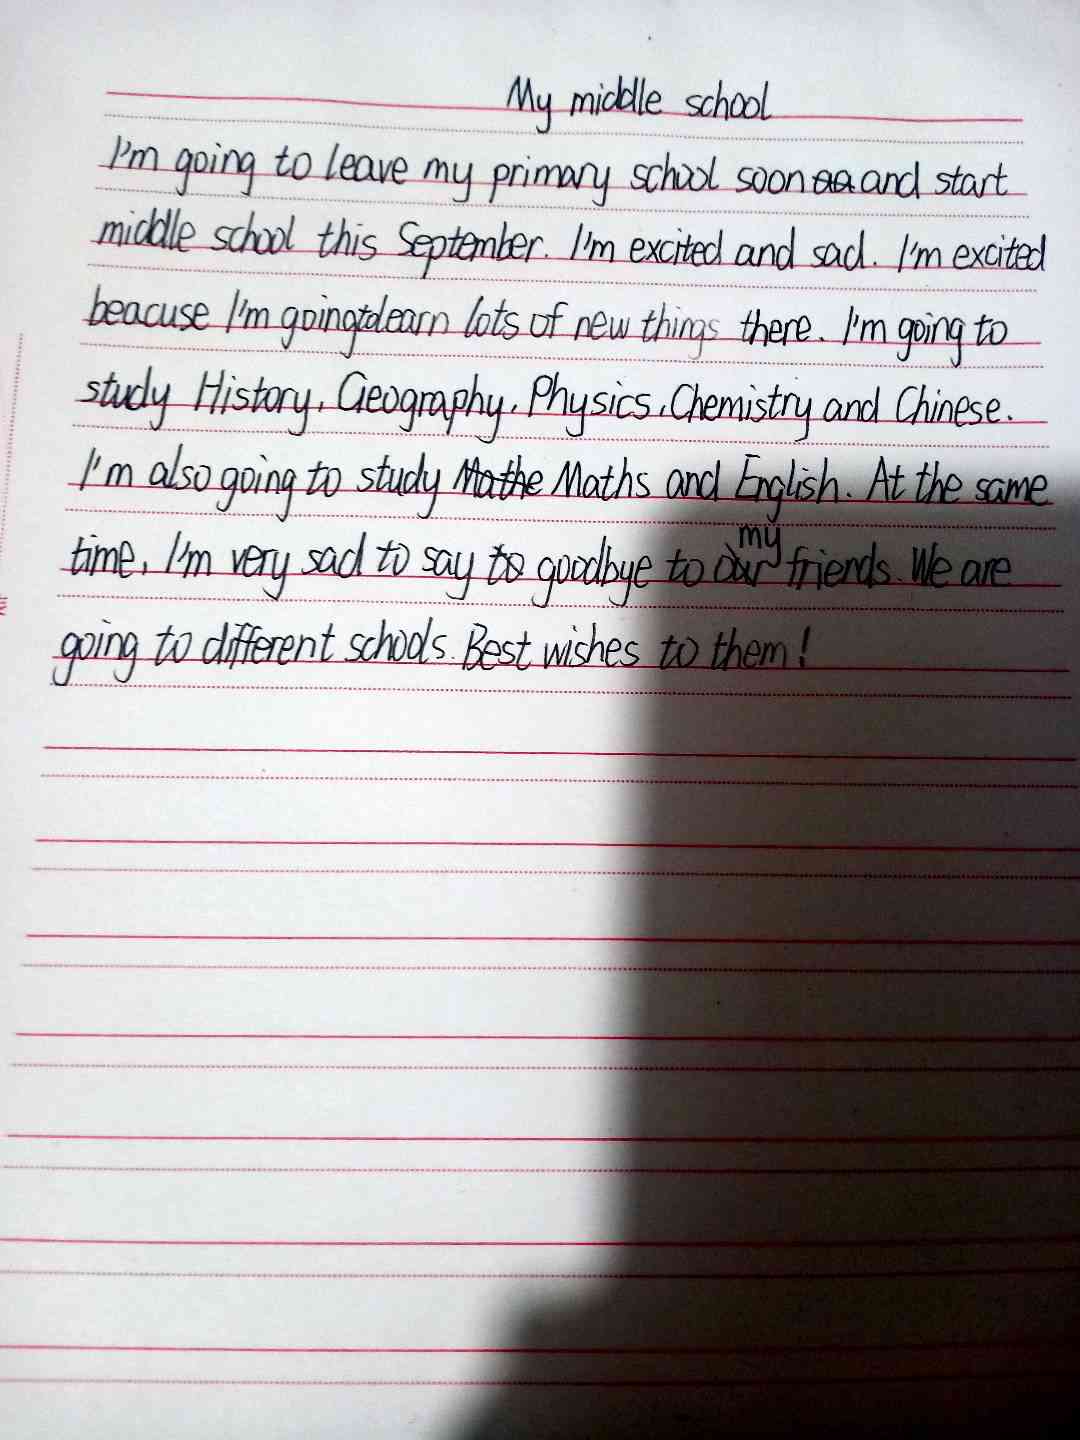 My middle school
I'm going to leave my primary school soon and start
middle school this September. I'm excited and sad. I'm excited
beacuse I'm going to learn lots of new things there. I'm going to
study History, Geography, Physics, Chemistry and Chinese.
I'm also going to study Maths and English. At the same
time, I'm very sad to say goodbye to my friends. We are
going to different schools. Best wishes to them!